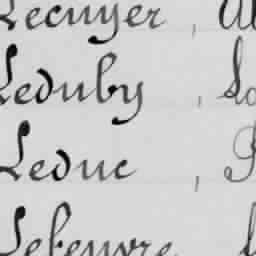 Lecuyer ,
Leduby ,
Leduc ,
Lefeuvre